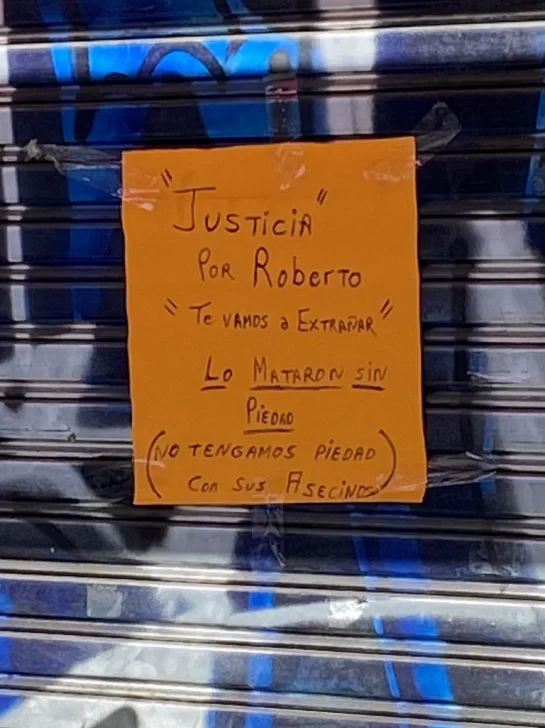 "JUSTiCiA"
POR RObERTO
"Te VAMOS a EXTRAÑAR"
LO MATARON SiN
PiEDAD
(NO TENGAMOS PiEDAD
CON SUS ASECiNOS)